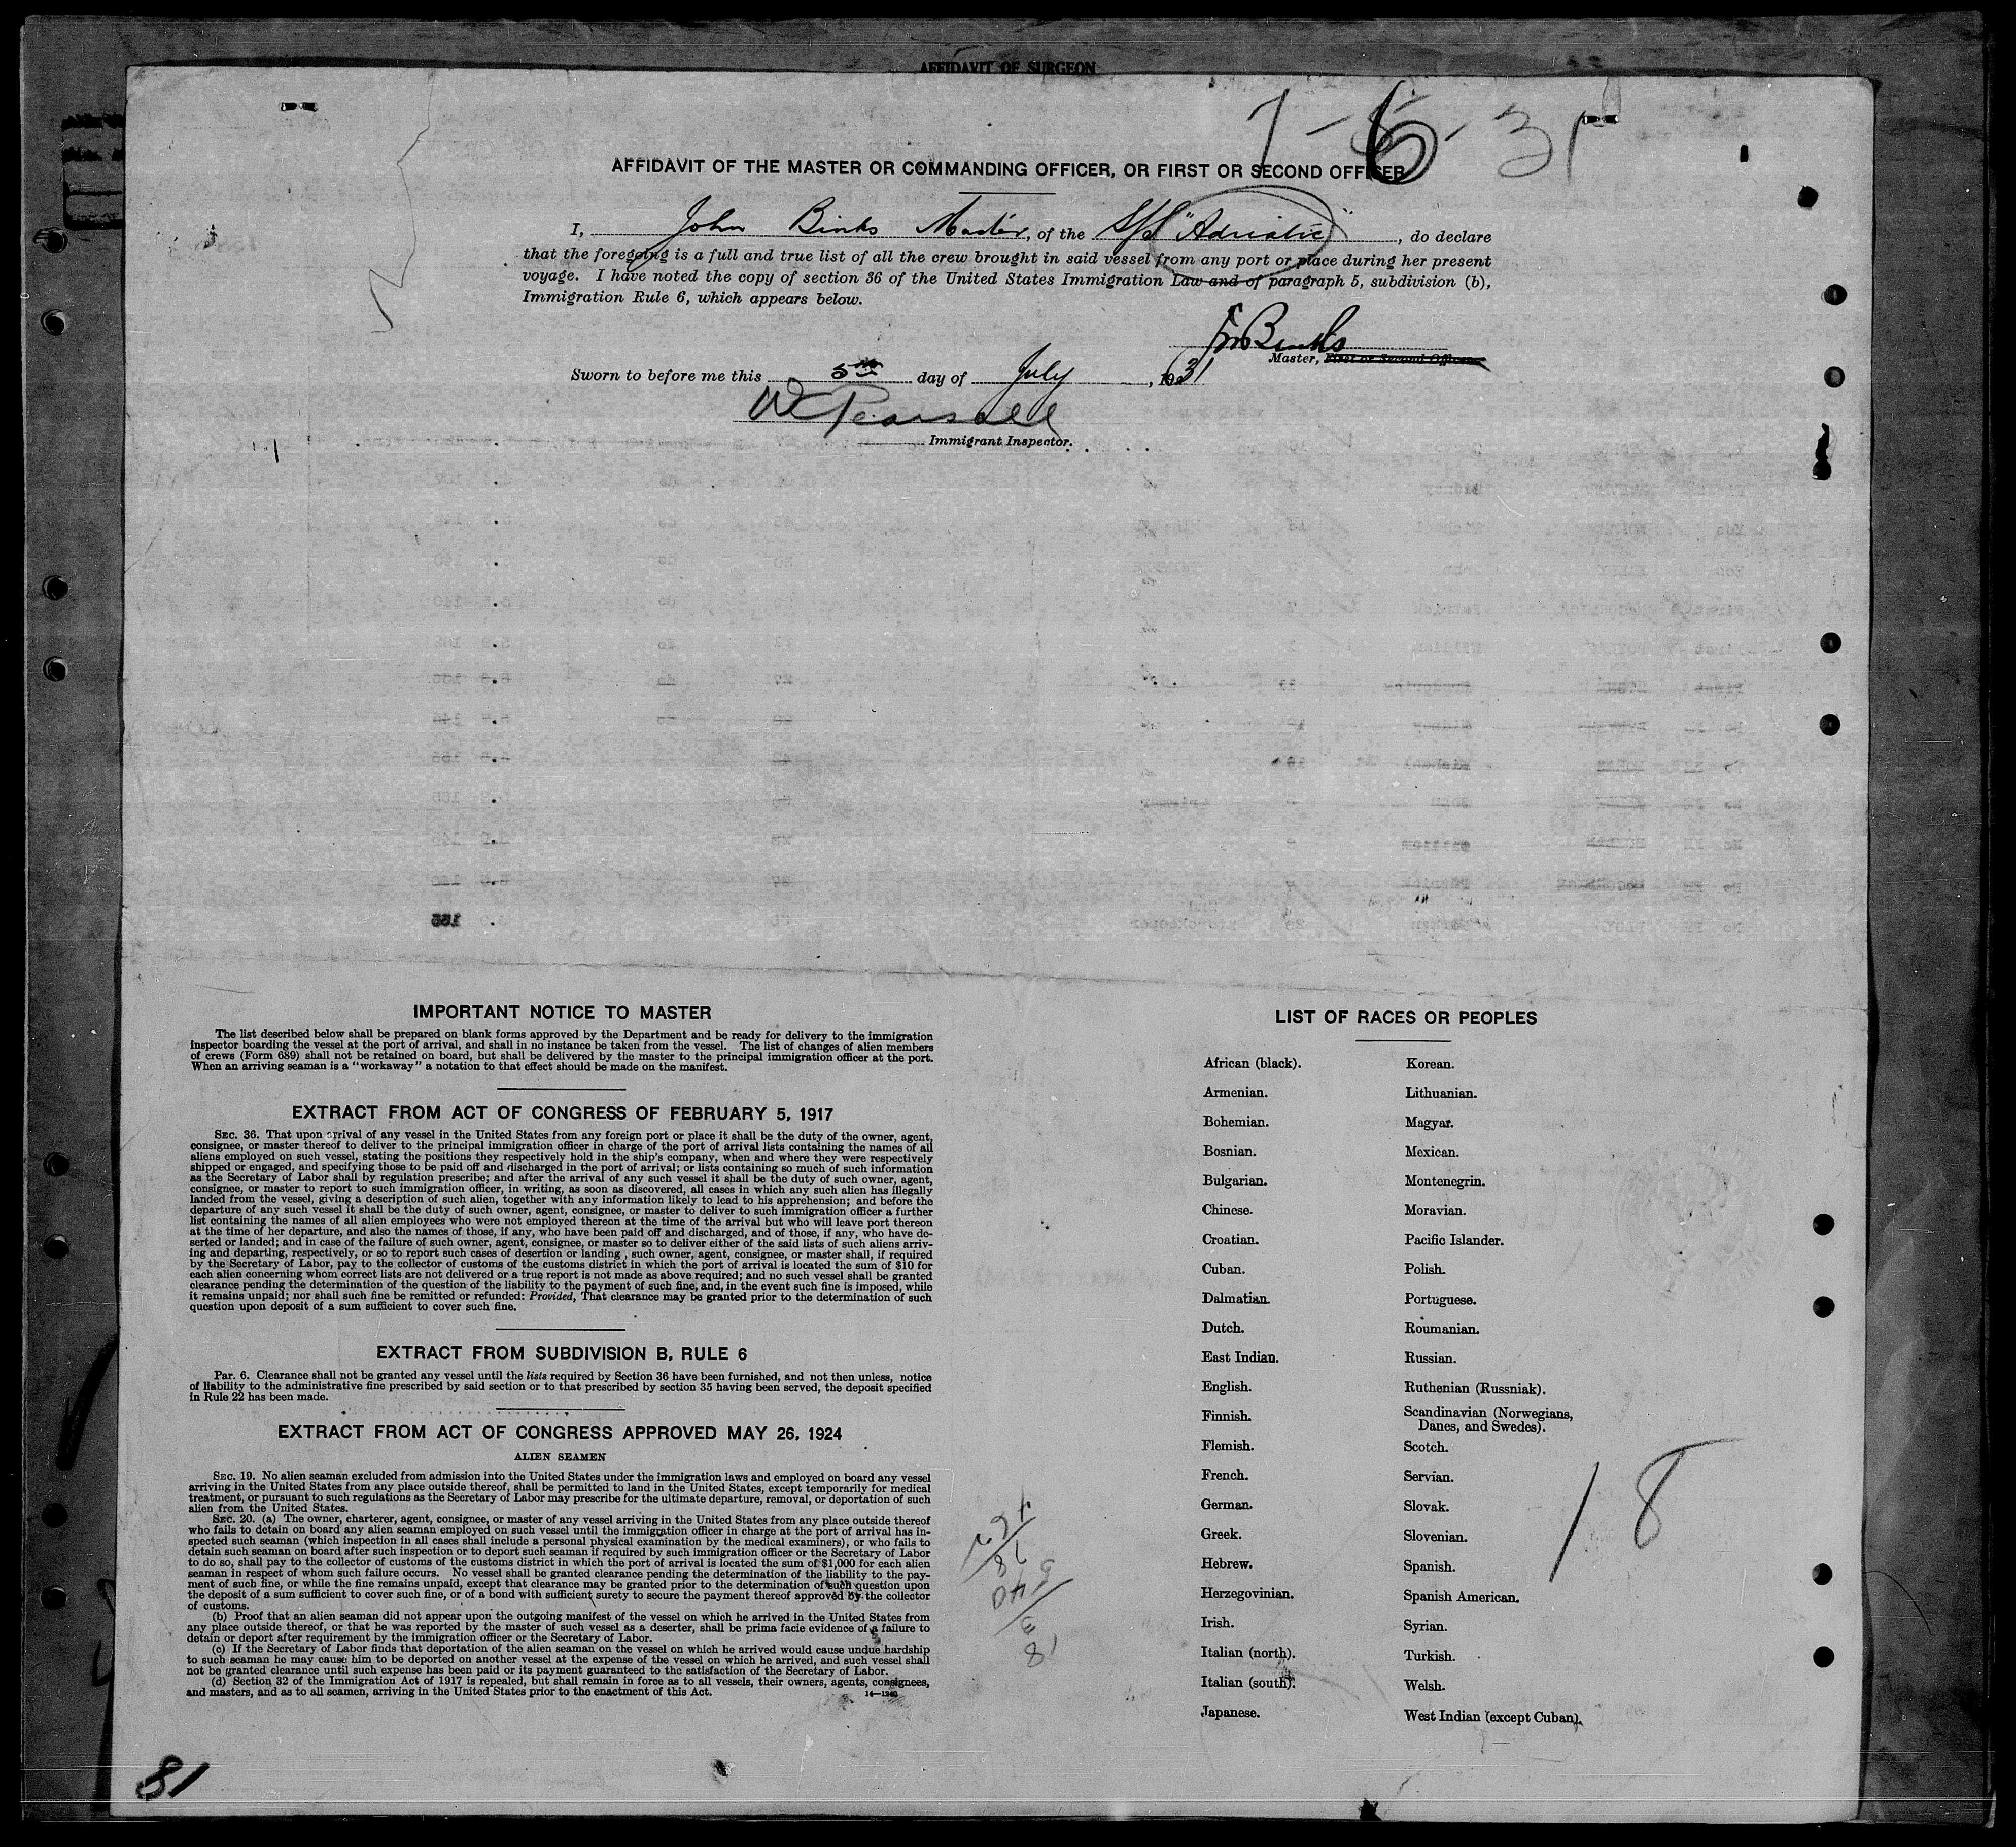 AFFIDAVIT OF SURGEON
7-6-31
AFFIDAVIT OF THE MASTER OR COMMANDING OFFICER, OR FIRST OR SECOND OFFICER
I, John Binks Master, of the S/S "Adriatic", do declare
that the foregoing is a full and true list of all the crew brought in said vessel from any port or place during her present
voyage. I have noted the copy of section 36 of the United States Immigration Law and of paragraph 5, subdivision (b),
Immigration Rule 6, which appears below.
Binks
Master, First or Second Officer.
Sworn to before me this 5th day of July, 1931
W Pearsall
Immigrant Inspector.
IMPORTANT NOTICE TO MASTER
The list described below shall be prepared on blank forms approved by the Department and be ready for delivery to the immigration
inspector boarding the vessel at the port of arrival, and shall in no instance be taken from the vessel. The list of changes of alien members
of crews (Form 689) shall not be retained on board, but shall be delivered by the master to the principal immigration officer at the port.
When an arriving seaman is a "workaway" a notation to that effect should be made on the manifest.
EXTRACT FROM ACT OF CONGRESS OF FEBRUARY 5, 1917
SEC. 36. That upon arrival of any vessel in the United States from any foreign port or place it shall be the duty of the owner, agent,
consignee, or master thereof to deliver to the principal immigration officer in charge of the port of arrival lists containing the names of all
aliens employed on such vessel, stating the positions they respectively hold in the ship's company, when and where they were respectively
shipped or engaged, and specifying those to be paid off and discharged in the port of arrival; or lists containing so much of such information
as the Secretary of Labor shall by regulation prescribe; and after the arrival of any such vessel it shall be the duty of such owner, agent,
consignee, or master to report to such immigration officer, in writing, as soon as discovered, all cases in which any such alien has illegally
landed from the vessel, giving a description of such alien, together with any information likely to lead to his apprehension; and before the
departure of any such vessel it shall be the duty of such owner, agent, consignee, or master to deliver to such immigration officer a further
list containing the names of all alien employees who were not employed thereon at the time of the arrival but who will leave port thereon
at the time of her departure, and also the names of those, if any, who have been paid off and discharged, and of those, if any, who have de-
serted or landed; and in case of the failure of such owner, agent, consignee, or master so to deliver either of the said lists of such aliens arriv-
ing and departing, respectively, or so to report such cases of desertion or landing, such owner, agent, consignee, or master shall, if required
by the Secretary of Labor, pay to the collector of customs of the customs district in which the port of arrival is located the sum of $10 for
each alien concerning whom correct lists are not delivered or a true report is not made as above required; and no such vessel shall be granted
clearance pending the determination of the question of the liability to the payment of such fine, and, in the event such fine is imposed, while
it remains unpaid; nor shall such fine be remitted or refunded: Provided, That clearance may be granted prior to the determination of such
question upon deposit of a sum sufficient to cover such fine.
EXTRACT FROM SUBDIVISION B, RULE 6
PAR. 6. Clearance shall not be granted any vessel until the lists required by Section 36 have been furnished, and not then unless, notice
of liability to the administrative fine prescribed by said section or to that prescribed by section 35 having been served, the deposit specified
in Rule 22 has been made.
EXTRACT FROM ACT OF CONGRESS APPROVED MAY 26, 1924
ALIEN SEAMEN
SEC. 19. No alien seaman excluded from admission into the United States under the immigration laws and employed on board any vessel
arriving in the United States from any place outside thereof, shall be permitted to land in the United States, except temporarily for medical
treatment, or pursuant to such regulations as the Secretary of Labor may prescribe for the ultimate departure, removal, or deportation of such
alien from the United States.
SEC. 20. (a) The owner, charterer, agent, consignee, or master of any vessel arriving in the United States from any place outside thereof
who fails to detain on board any alien seaman employed on such vessel until the immigration officer in charge at the port of arrival has in-
spected such seaman (which inspection in all cases shall include a personal physical examination by the medical examiners), or who fails to
detain such seaman on board after such inspection or to deport such seaman if required by such immigration officer or the Secretary of Labor
to do so, shall pay to the collector of customs of the customs district in which the port of arrival is located the sum of $1,000 for each alien
seaman in respect of whom such failure occurs. No vessel shall be granted clearance pending the determination of the liability to the pay-
ment of such fine, or while the fine remains unpaid, except that clearance may be granted prior to the determination of such question upon
the deposit of a sum sufficient to cover such fine, or of a bond with sufficient surety to secure the payment thereof approved by the collector
of customs.
(b) Proof that an alien seaman did not appear upon the outgoing manifest of the vessel on which he arrived in the United States from
any place outside thereof, or that he was reported by the master of such vessel as a deserter, shall be prima facie evidence of a failure to
detain or deport after requirement by the immigration officer or the Secretary of Labor.
(c) If the Secretary of Labor finds that deportation of the alien seaman on the vessel on which he arrived would cause undue hardship
to such seaman he may cause him to be deported on another vessel at the expense of the vessel on which he arrived, and such vessel shall
not be granted clearance until such expense has been paid or its payment guaranteed to the satisfaction of the Secretary of Labor.
(d) Section 32 of the Immigration Act of 1917 is repealed, but shall remain in force as to all vessels, their owners, agents, consignees,
and masters, and as to all seamen, arriving in the United States prior to the enactment of this Act.
14—1240
LIST OF RACES OR PEOPLES
African (black).
Armenian.
Bohemian.
Bosnian.
Bulgarian.
Chinese.
Croatian.
Cuban.
Dalmatian.
Dutch.
East Indian.
English.
Finnish.
Flemish.
French.
German.
Greek.
Hebrew.
Herzegovinian.
Irish.
Italian (north).
Italian (south).
Japanese.
Korean.
Lithuanian.
Magyar.
Mexican.
Montenegrin.
Moravian.
Pacific Islander.
Polish.
Portuguese.
Roumanian.
Russian.
Ruthenian (Russniak).
Scandinavian (Norwegians,
Danes, and Swedes).
Scotch.
Servian.
Slovak.
Slovenian.
Spanish.
Spanish American.
Syrian.
Turkish.
Welsh.
West Indian (except Cuban).
18
81